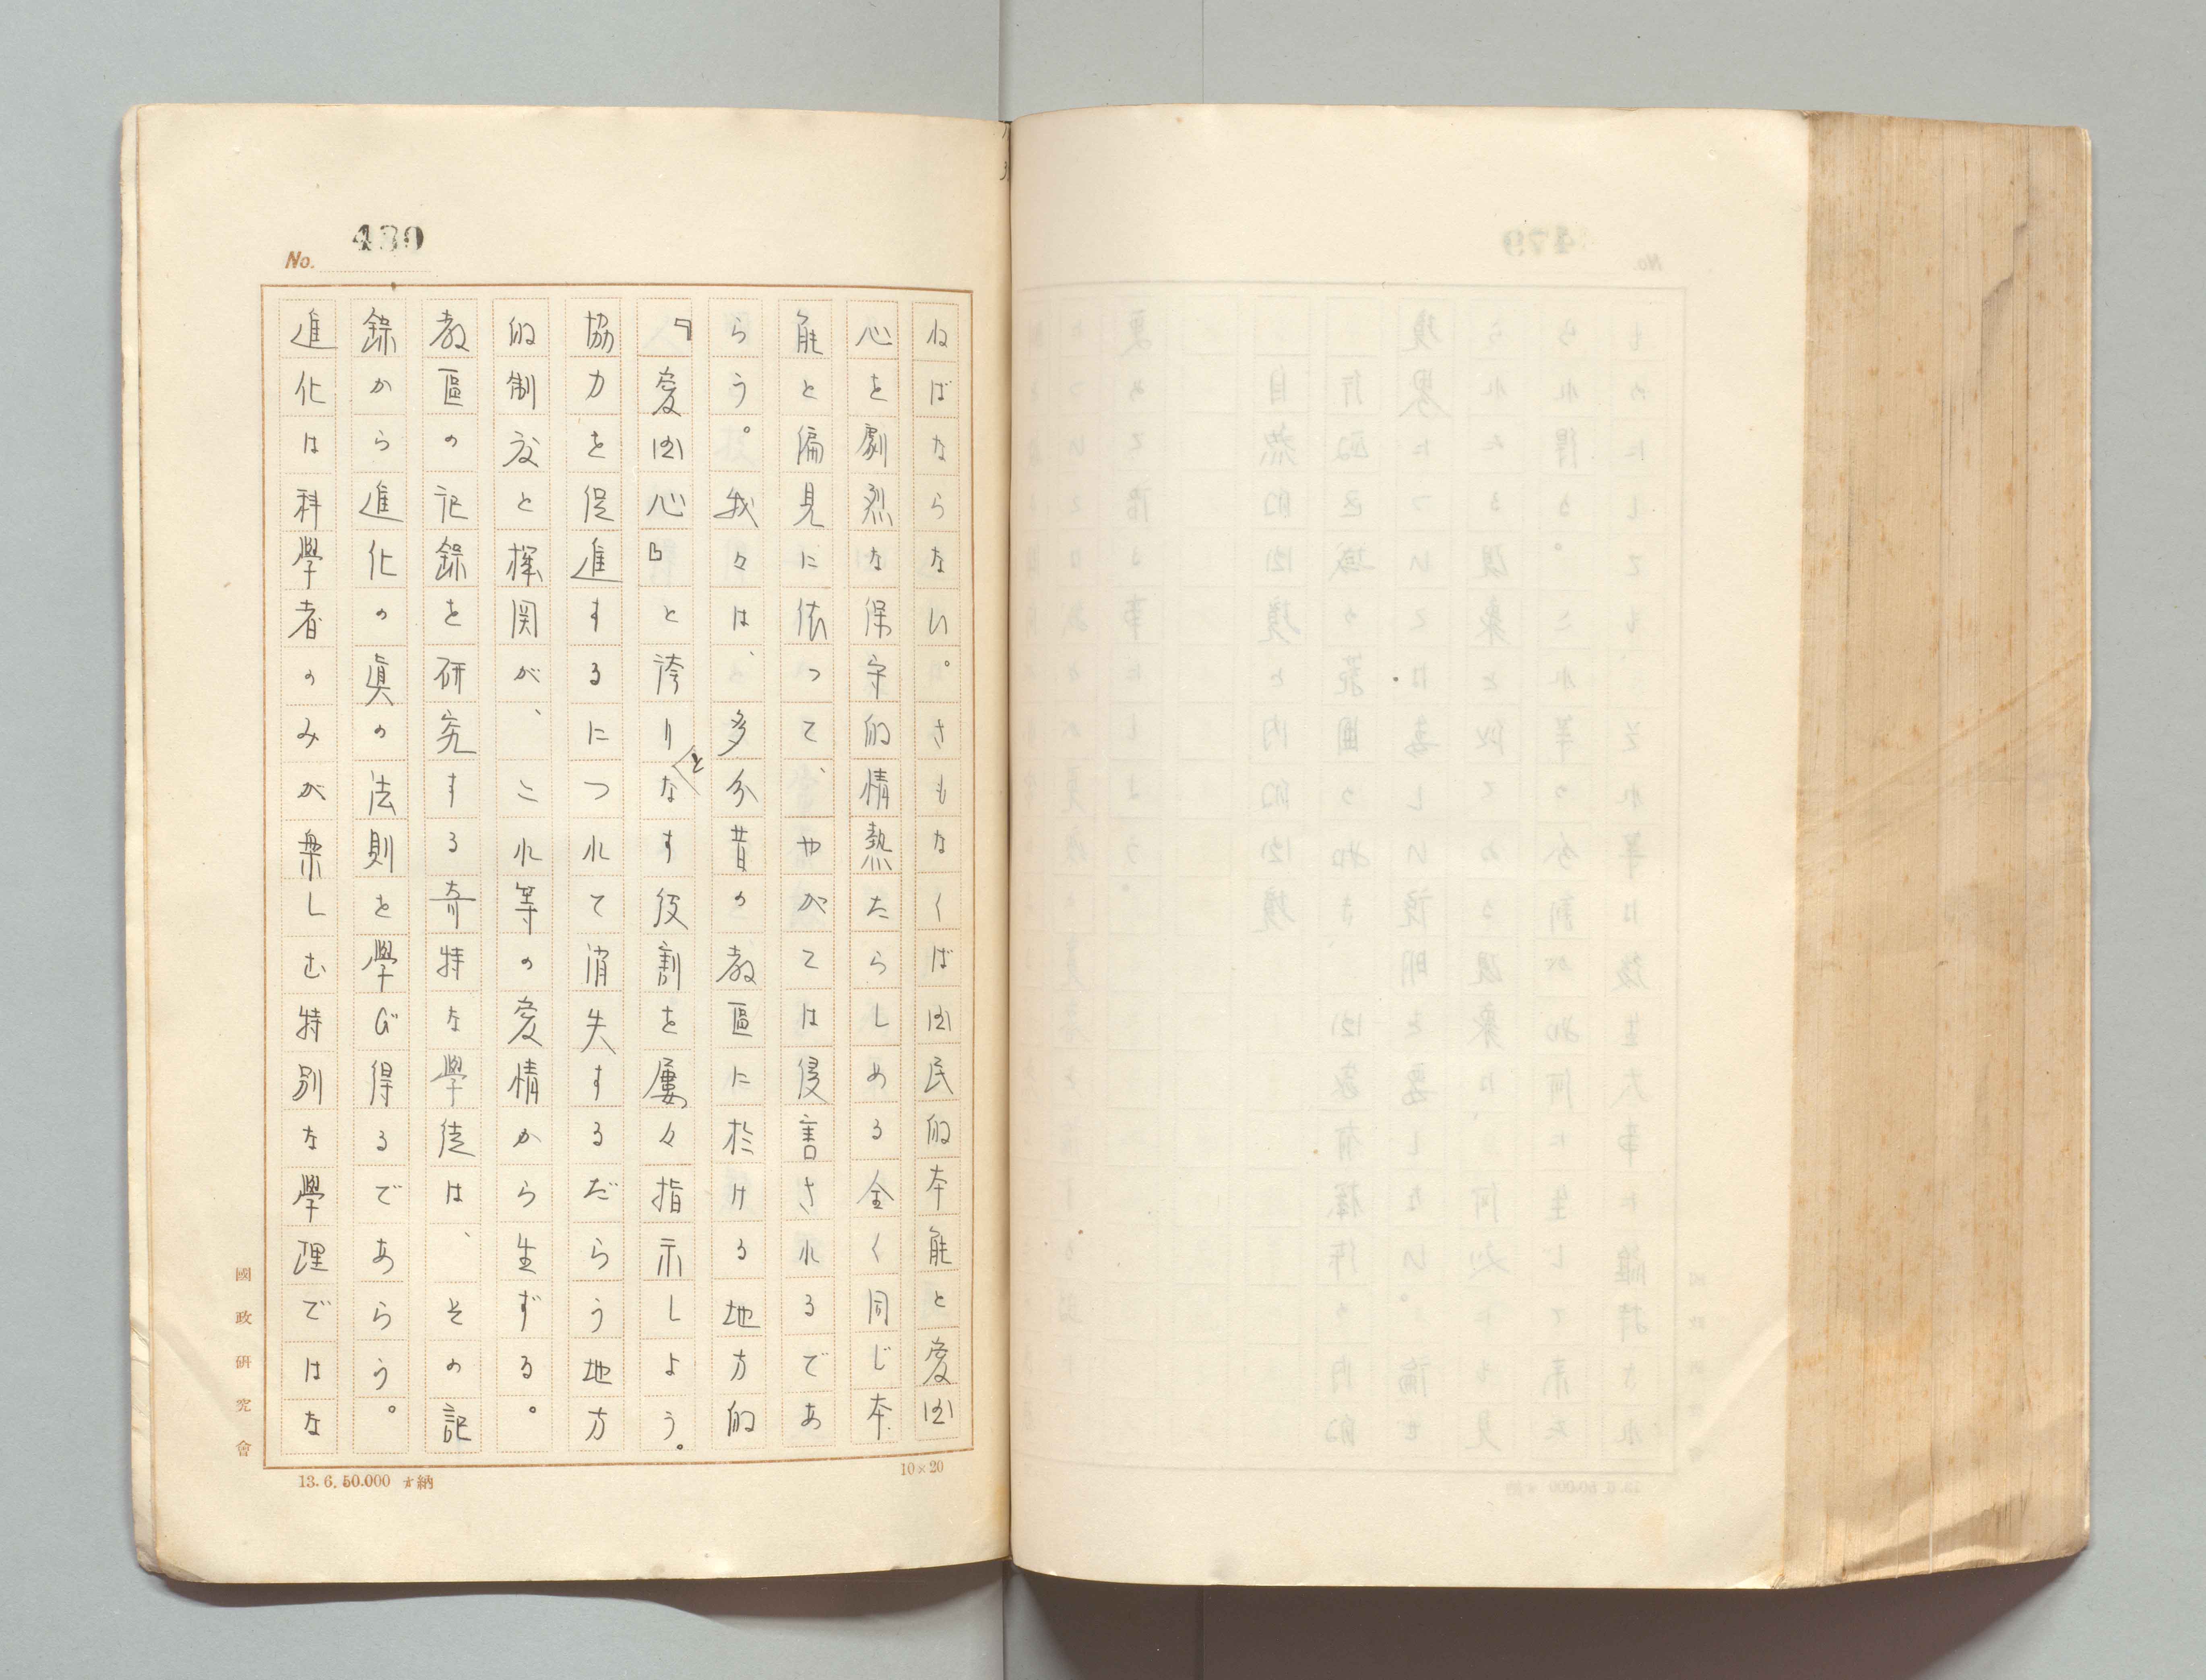 No. 480
ねばならない。さもなくば国民的本能と愛国
心を劇烈な保守的情熱たらしめる全く同じ本
能と偏見に依って、やがては侵害されるであ
らう。我々は、多分昔の教區に於ける地方的
『愛国心』と誇りとなす役割を屡々指示しよう。
協力を促進するにつれて消失するだらう地方
的制度と機関が、これ等の愛情から生ずる。
教區の記錄を研究する奇特な學徒は、その記
錄から進化の眞の法則を學び得るであらう。
進化は科學者のみが樂しむ特別な學理ではな
國政研究會
10×20
13.6.50.000 納